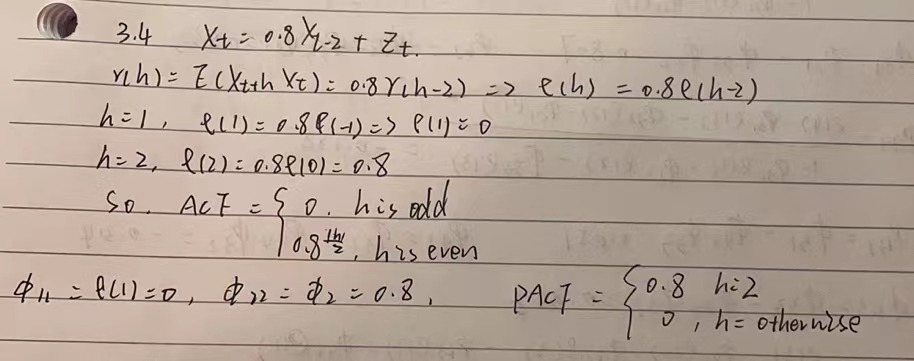 3.4 Xt = 0.8 Xt-2 + Zt.
γ(h) = E(Xt+h Xt) = 0.8 γ(h-2) => ρ(h) = 0.8ρ(h-2)
h=1, ρ(1) = 0.8ρ(-1) => ρ(1) = 0
h=2, ρ(2) = 0.8ρ(0) = 0.8
So. ACF = { 0. h is odd
0.8^{|h|/2}, h is even
Φ11 = ρ(1) = 0, Φ22 = Φ2 = 0.8, PACF = { 0.8 h=2
0, h= otherwise